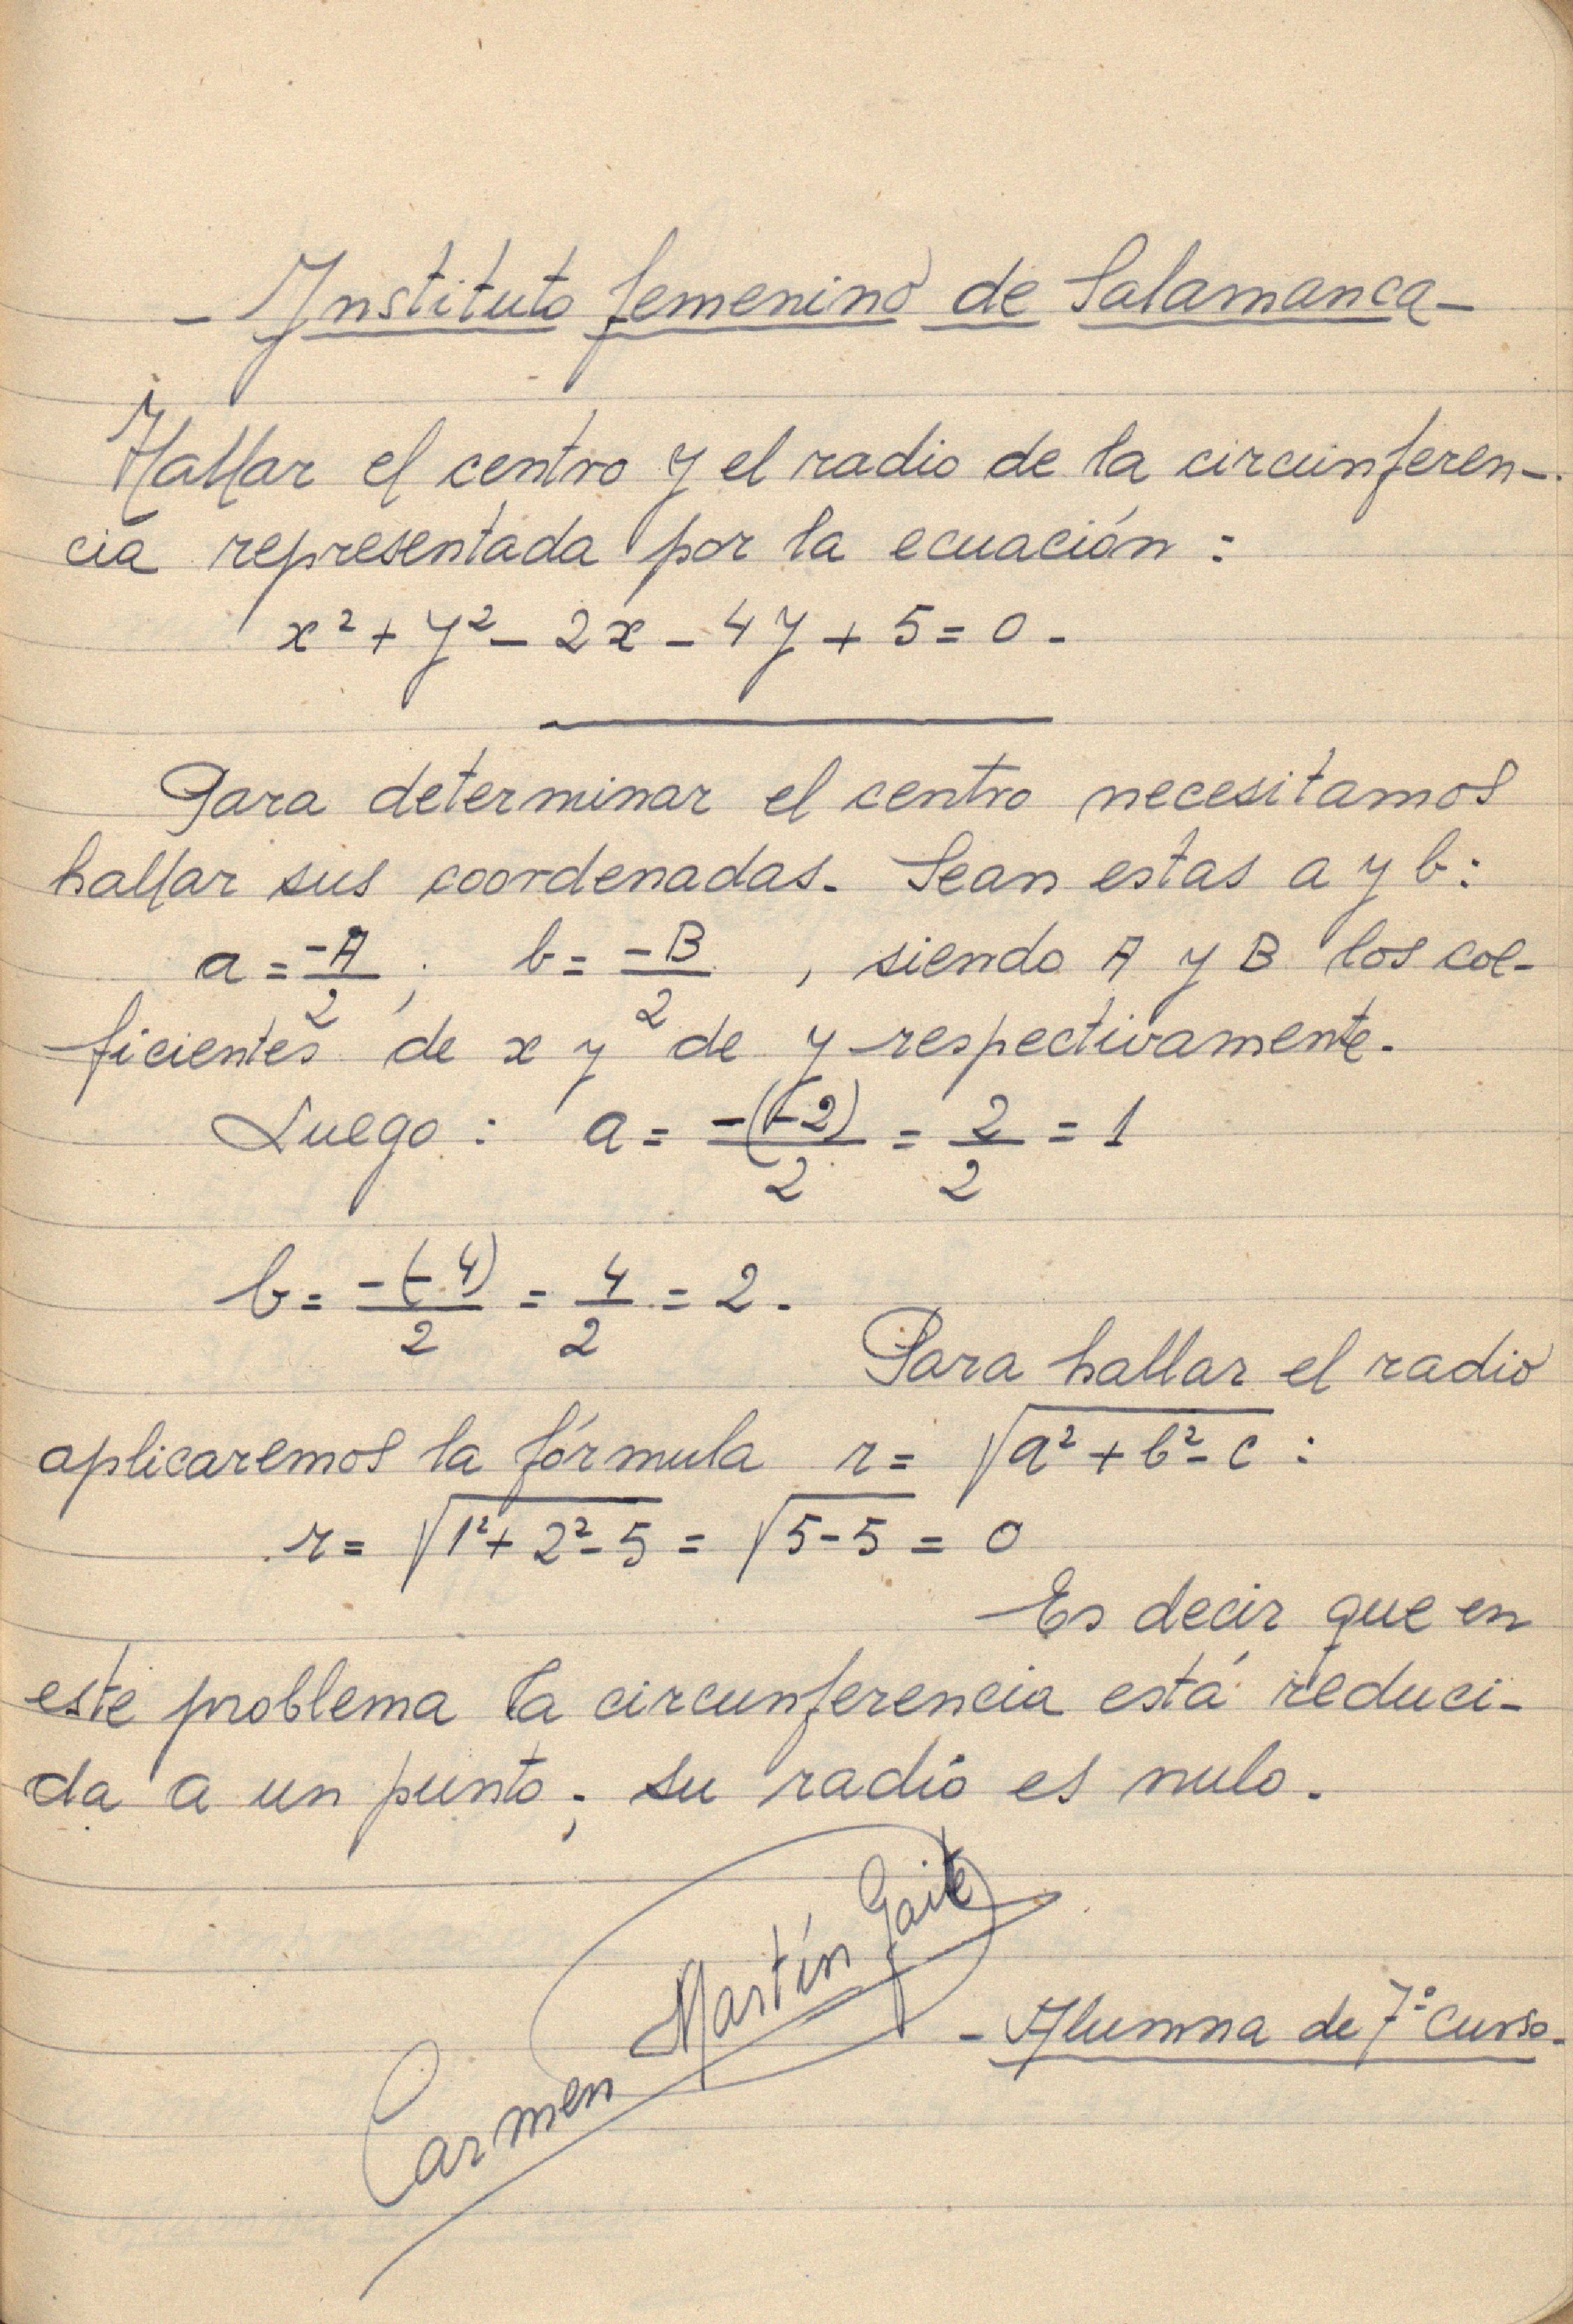 - Instituto femenino de Salamanca -
Hallar el centro y el radio de la circunferen-
cia representada por la ecuación :
x² + y² - 2x - 4y + 5 = 0 -
Para determinar el centro necesitamos
hallar sus coordenadas. Sean estas a y b :
a = -A/2 ; b = -B/2 , siendo A y B los coe-
ficientes de x y de y respectivamente.
Luego : a = -(-2)/2 = 2/2 = 1
b = -(-4)/2 = 4/2 = 2 -
Para hallar el radio
aplicaremos la fórmula r = √(a² + b² - c) :
r = √(1² + 2² - 5) = √(5 - 5) = 0
Es decir que en
este problema la circunferencia está reduci-
da a un punto ; su radio es nulo .
Carmen Martín Gaite
- Alumna de 7º curso -